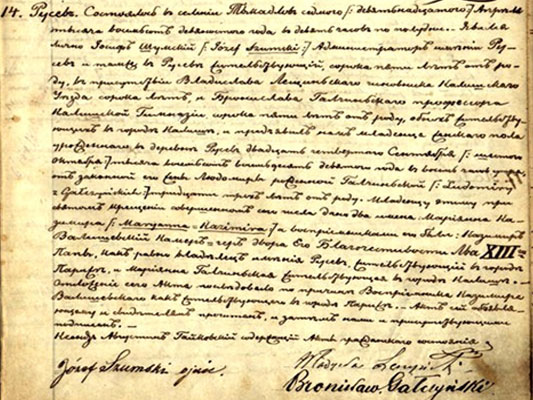 14. Русевъ. Состоялось въ селеніи Тыкадлевъ седьмого /: девятьнадцатаго :/ Апрѣля
тысяча восемьсотъ девяностаго года въ девять часовъ по полудни. Явился
лично Іосифъ Шумскій /: Józef Szumski :/ Администраторъ имѣнія Ру-
севъ и тамъ въ Русевѣ жительствующій, сорока пяти лѣтъ отъ ро-
ду, въ присутствіи Владислава чиновника Калишскаго
Уѣзда сорока лѣтъ, и Бронислава Галчиньскаго профессора
Калишской Гимназіи сорока пяти лѣтъ отъ роду, обоихъ жительству-
ющихъ въ городѣ Калишѣ, и предъявилъ намъ младенца женскаго пола
урожденнаго въ деревнѣ Русевъ двадцать четвертаго Сентября /: шестого
Октября :/ тысяча восемьсотъ восемьдесятъ девятаго года въ восемь часовъ утра
отъ законной его жены Людомиры рожденной Галчиньской /: Ludomiry
z Galczyńskich :/ тридцати трехъ лѣтъ отъ роду. Младенцу этому при
святомъ крещеніи совершенномъ сего числа даны два имена Маріянна Ка-
зимира /: Maryanna Kazimira :/ а воспріемниками его были: Казимиръ
Валишевскій Камеръ-геръ Двора Его Благочестивости Льва XIII
Папы, какъ равно владѣлецъ имѣнія Русевъ, жительствующій въ городѣ
Парижѣ, и Маріянна Галчиньская жительствующая въ городѣ Калишѣ.
сего Акта послѣдовало по причинѣ Воспріемника Казимира
Валишевскаго какъ жительствующаго въ городѣ Парижѣ. Актъ сей объявля-
ющему и свидѣтелямъ прочитанъ, и затѣмъ нами и присутствующими
подписанъ.
Ксендзъ Августинъ содержащій Акты гражданскаго состоянія
Józef Szumski ojciec.
Bronisław Gałczyński.